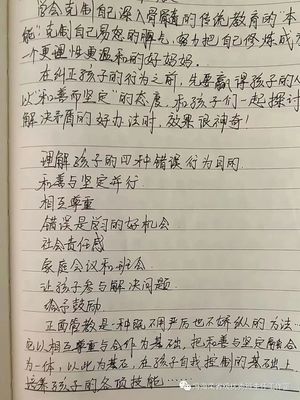 学会克制自己深入骨髓的传统教育的“本
能”克制自己易怒的脾气，努力把自己修炼成为
一个更理性更温和的好妈妈。
在纠正孩子的行为之前，先要赢得孩子的心
以“和善而坚定”的态度，和孩子们一起探讨
解决矛盾的好办法时，效果很神奇！
理解孩子的四种错误行为目的
和善与坚定并行
相互尊重
错误是学习的好机会
社会责任感
家庭会议和班会
让孩子参与解决问题
给予鼓励
正面管教是一种既不用严厉也不娇纵的方法…
它以相互尊重与合作为基础，把和善与坚定融合
为一体，以此为基石，在孩子自我控制的基础上
培养孩子的各项技能……